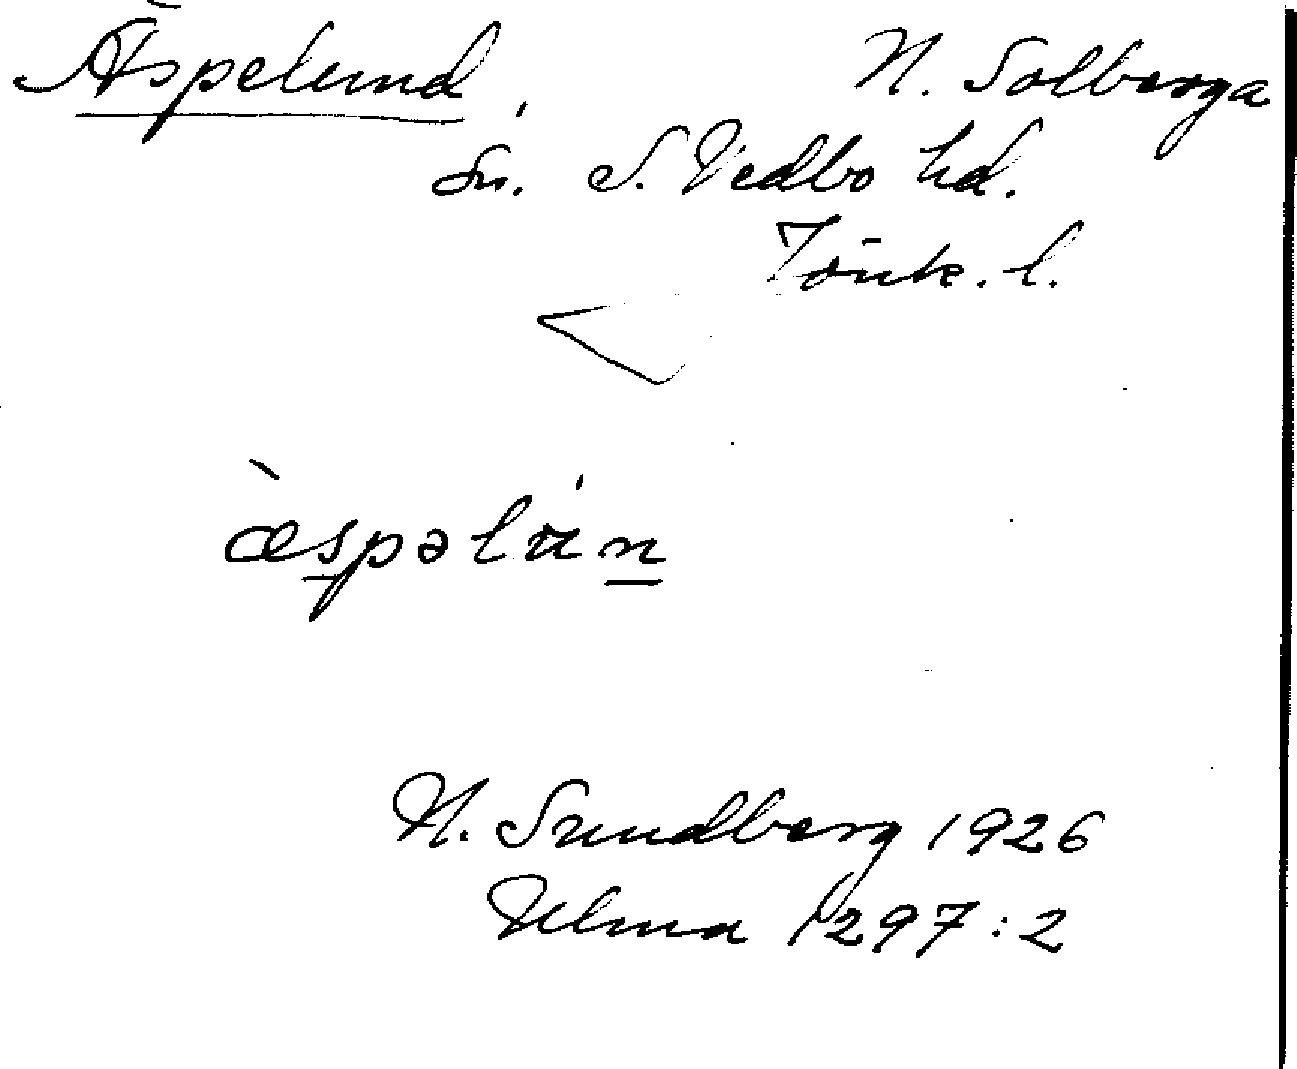 Äspelund, N. Solberga
sn. S. Vedbo hd.
Jönk. l.
æ̀spəlún
H. Sundberg 1926
Ulma 1297:2